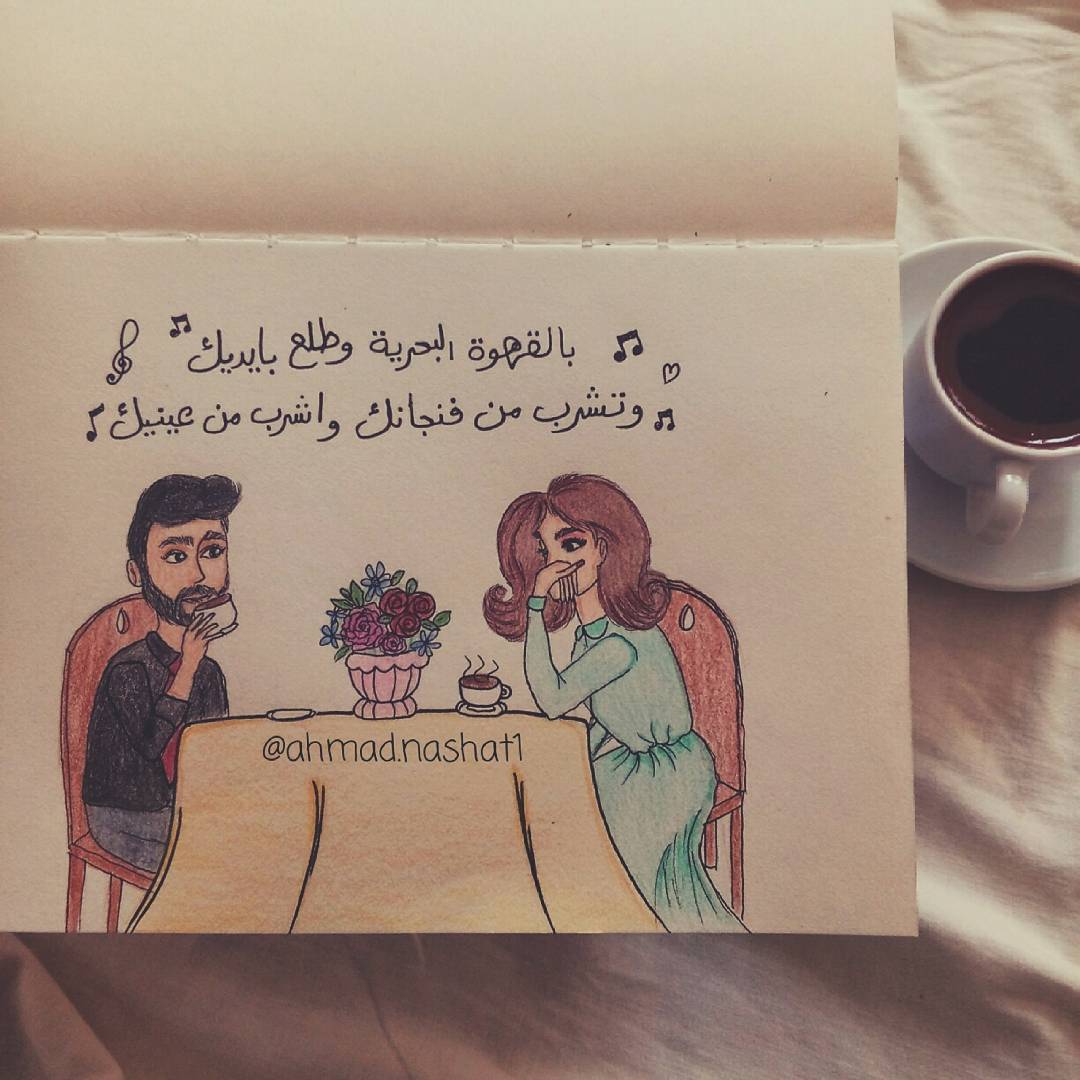 بالقهوة البحرية وطلع بايديك
وتشرب من فنجانك واشرب من عينيك
@ahmad.nashat1